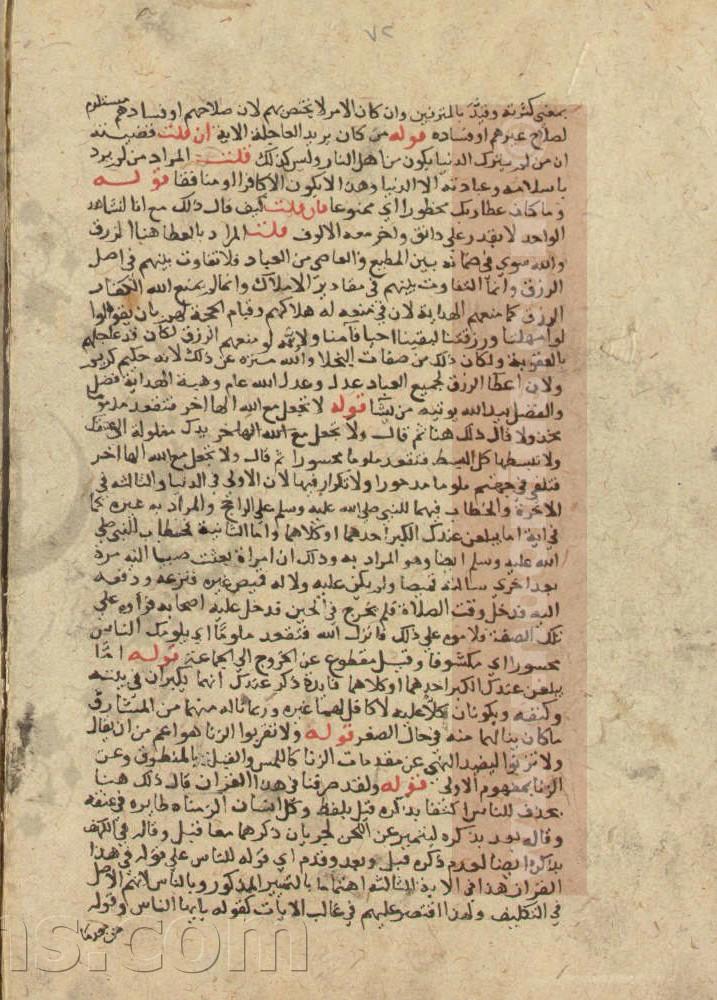 ٧٢
بمعنى كثرته وقيد بالمترفين وان كان الامر لا يختص بهم لان صلاحهم او فسادهم مستلزم
لصلاح غيرهم او فساده قوله من كان يريد العاجلة الاية ان قلت قضيته
ان من لم يترك الدنيا يكون من اهل النار وليس كذلك قلت المراد من لم يرد
باسلامه وعبادته الا الدنيا وهذا لا يكون الا كافرا او منافقا قوله
وما كان عطا ربك محظورا اي ممنوعا فان قلت كيف قال ذلك مع انا نشاهد
الواحد لا يقدر على دانق واخر معه الالوف قلت المراد بالعطا هنا الرزق
والله سوى في ضمانه بين المطيع والعاصي من العباد فلا تفاوت بينهم في اصل
الرزق وانما التفاوت بينهم في مقادير الاملاك وانما لم يمنع الله الكفار
الرزق كما منعهم الهداية لان في منعه له هلاكهم وقيام الحجة لهم بان يقولوا
لو امهلتنا ورزقتنا لبقينا احيا فآمنا ولانه لو منعهم الرزق لكان قد عاجلهم
بالعقوبة ولكان ذلك من صفات البخلا والله منزه عن ذلك لانه حليم كريم
ولان اعطا الرزق لجميع العباد عدل وعدل الله عام وهبة الهداية فضل
والفضل بيد الله يوتيه من يشا قوله لا تجعل مع الله الها اخر فتقعد مذموما
مخذولا قال ذلك هنا ثم قال ولا تجعل يدك مغلولة الى عنقك
ولا تبسطها كل البسط فتقعد ملوما محسورا ثم قال ولا تجعل مع الله الها اخر
فتلقى في جهنم ملوما مدحورا ولا تكرار فيها لان الاولى في الدنيا والثالثة في
الاخرة والخطاب فيهما للنبي صلى الله عليه وسلم على الراجح والمراد به غيره كما
في اية اما يبلغن عندك الكبر احدهما او كلاهما واما الثانية فخطاب للنبي صلى
الله عليه وسلم ايضا وهو المراد به وذلك ان امراة بعثت صبيا اليه مرة
بعد اخرى سالته قميصا ولم يكن عليه ولا له قميص غيره فنزعه ودفعه
اليه فدخل وقت الصلاة فلم يخرج في الحين فدخل عليه اصحابه فراوه على
تلك الصفة فلاموه على ذلك فانزل الله فتقعد ملوما اي يلومك الناس
محسورا اي مكشوفا وقيل مقطوع عن الخروج الى الجماعة قوله اما
يبلغن عندك الكبر احدهما او كلاهما فايدة ذكر عندك انهما يكبران في بيته
وكنفه ويكونان كلا عليه لا كافل لهما غيره وربما ناله منهما من المشاق
ما كان ينالهما منه في حال الصغر قوله ولا تقربوا الزنا هو اعم من ان يقال
ولا تزنوا ليفيد النهي عن مقدمات الزنا كاللمس والقبلة بالمنطوق وعن
الزنا بمفهوم الاولى قوله ولقد صرفنا في هذا القران قال ذلك هنا
بحذف للناس اكتفا بذكره قبل بلفظ وكل انسان الزمناه طايره في عنقه
وقاله بعد بذكره ليتميز عن الجن لجريان ذكرهما معا قبل وقاله في الكهف
بذكره ايضا لعدم ذكره قبل وبعد وقدم اي قوله للناس على قوله في هذا
القران هذا في الاية الثالثة اهتماما بالتمييز المذكور وبالناس لانهم الاصل
في التكليف ولهذا اقتصر عليهم في غالب الايات كقوله يا ايها الناس او قوله
ns.com